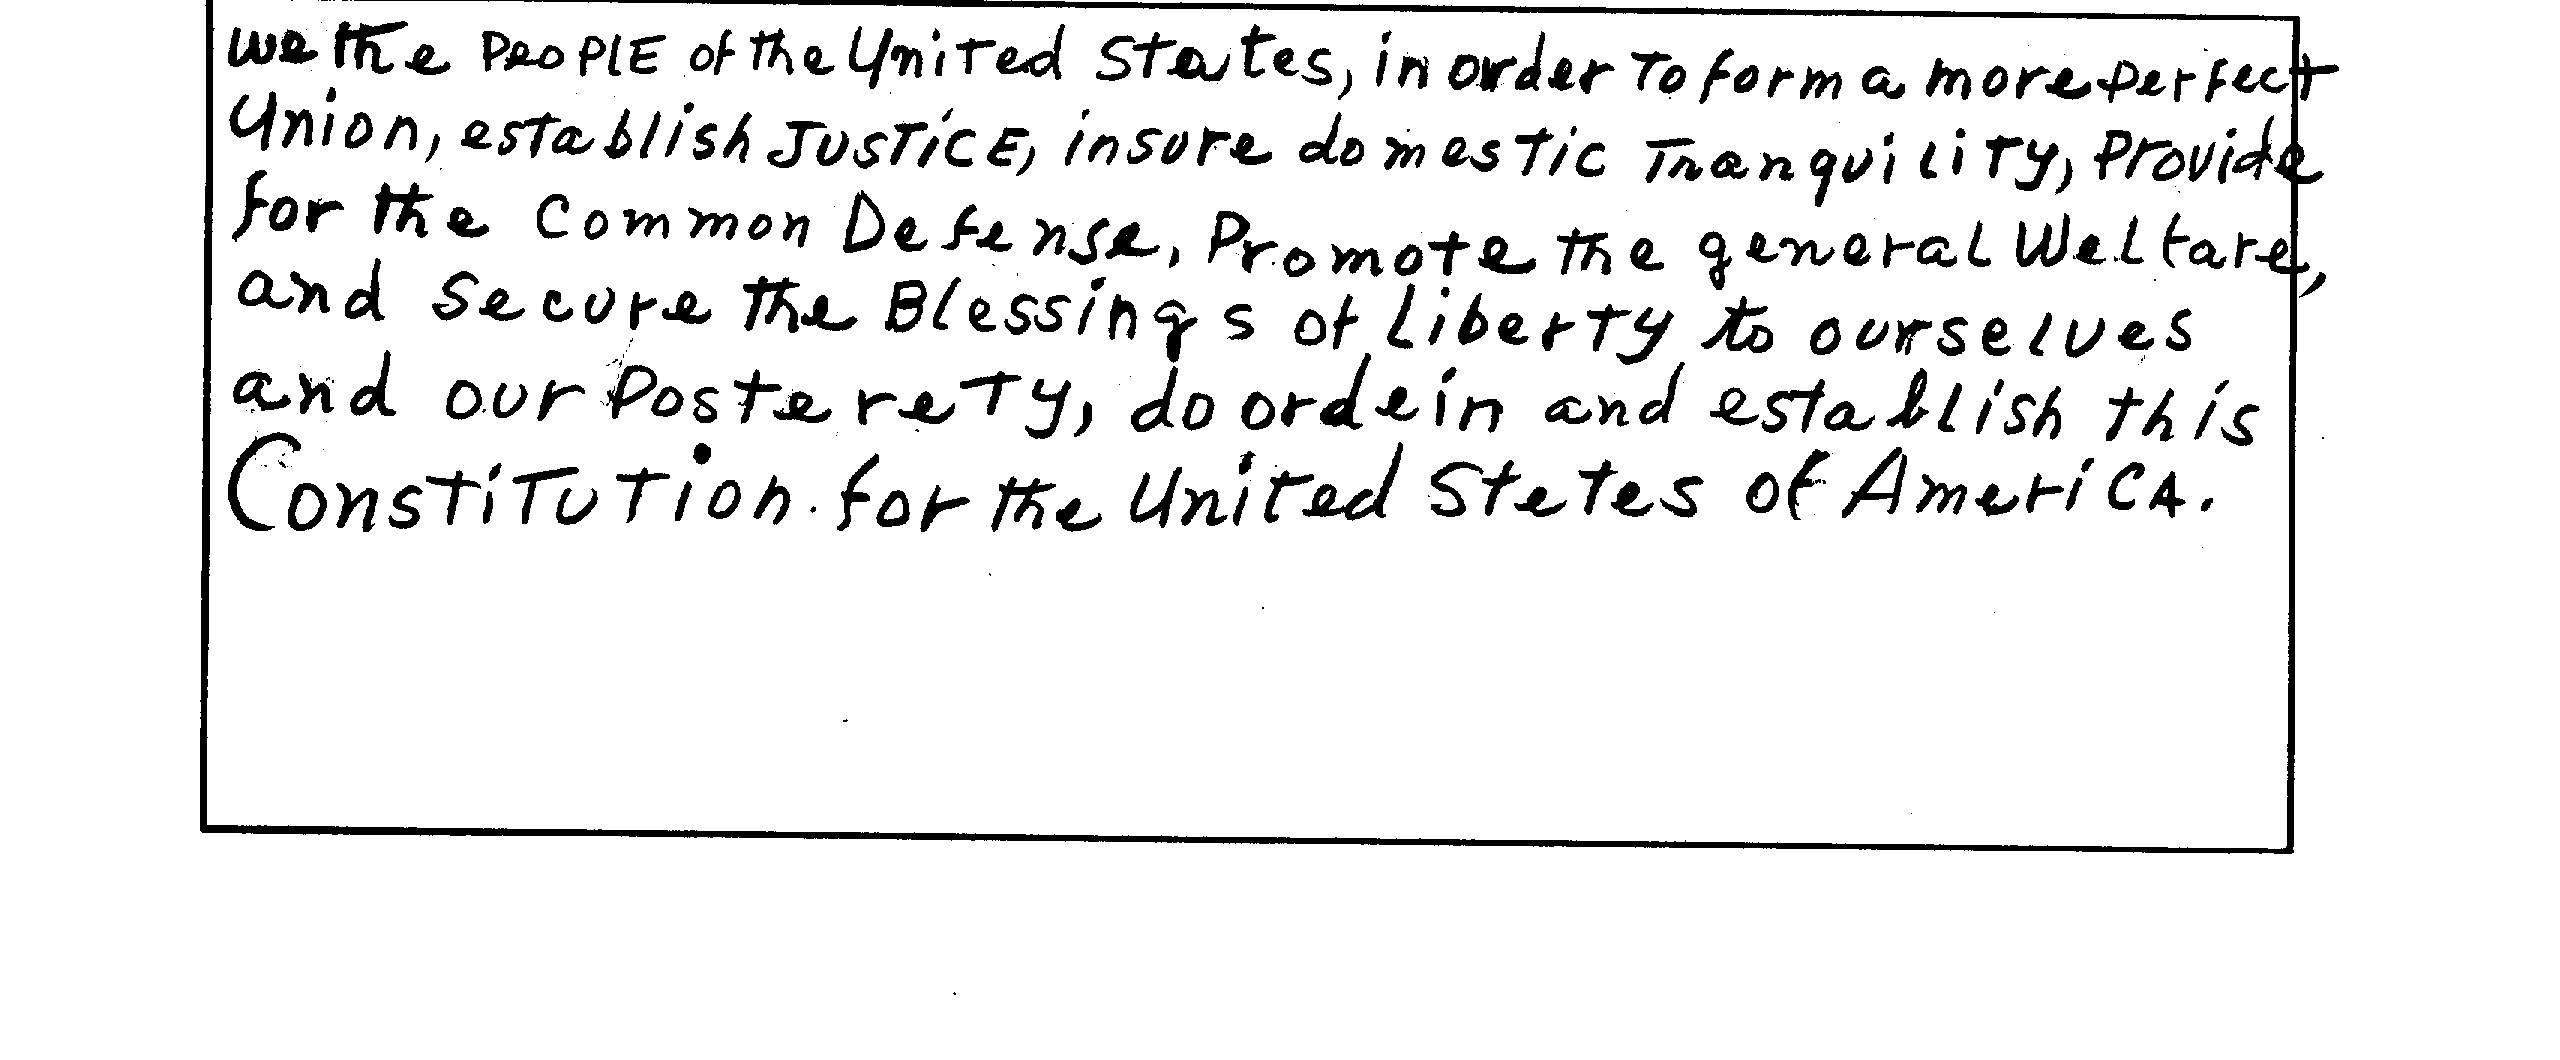 we the PEOPLE of the United States, in order To form a more perfect
Union, establish JUSTiCE, insure domestic Tranquility, Provide
for the Common Defense, Promote the general Welfare,
and Secure the Blessings of Liberty to ourselves
and our Posterety, do ordein and establish this
Constitution. for the United Stetes of AmeriCA.